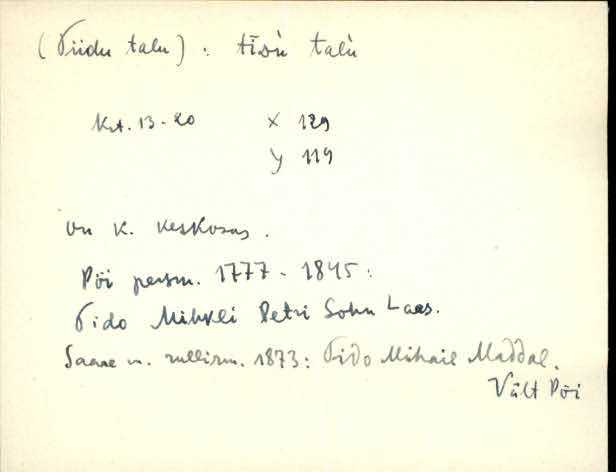 (Tiidu talu) : tīᴅù talù
Krt. 13-20 X 129
y 119
on k. keskosas.
Pöi persm. 1777 - 1845:
Tido Mihkli Petri Sohn Laes.
Saare m. rullirm. 1873: Tido Mihail Maddal.
Vält Pöi